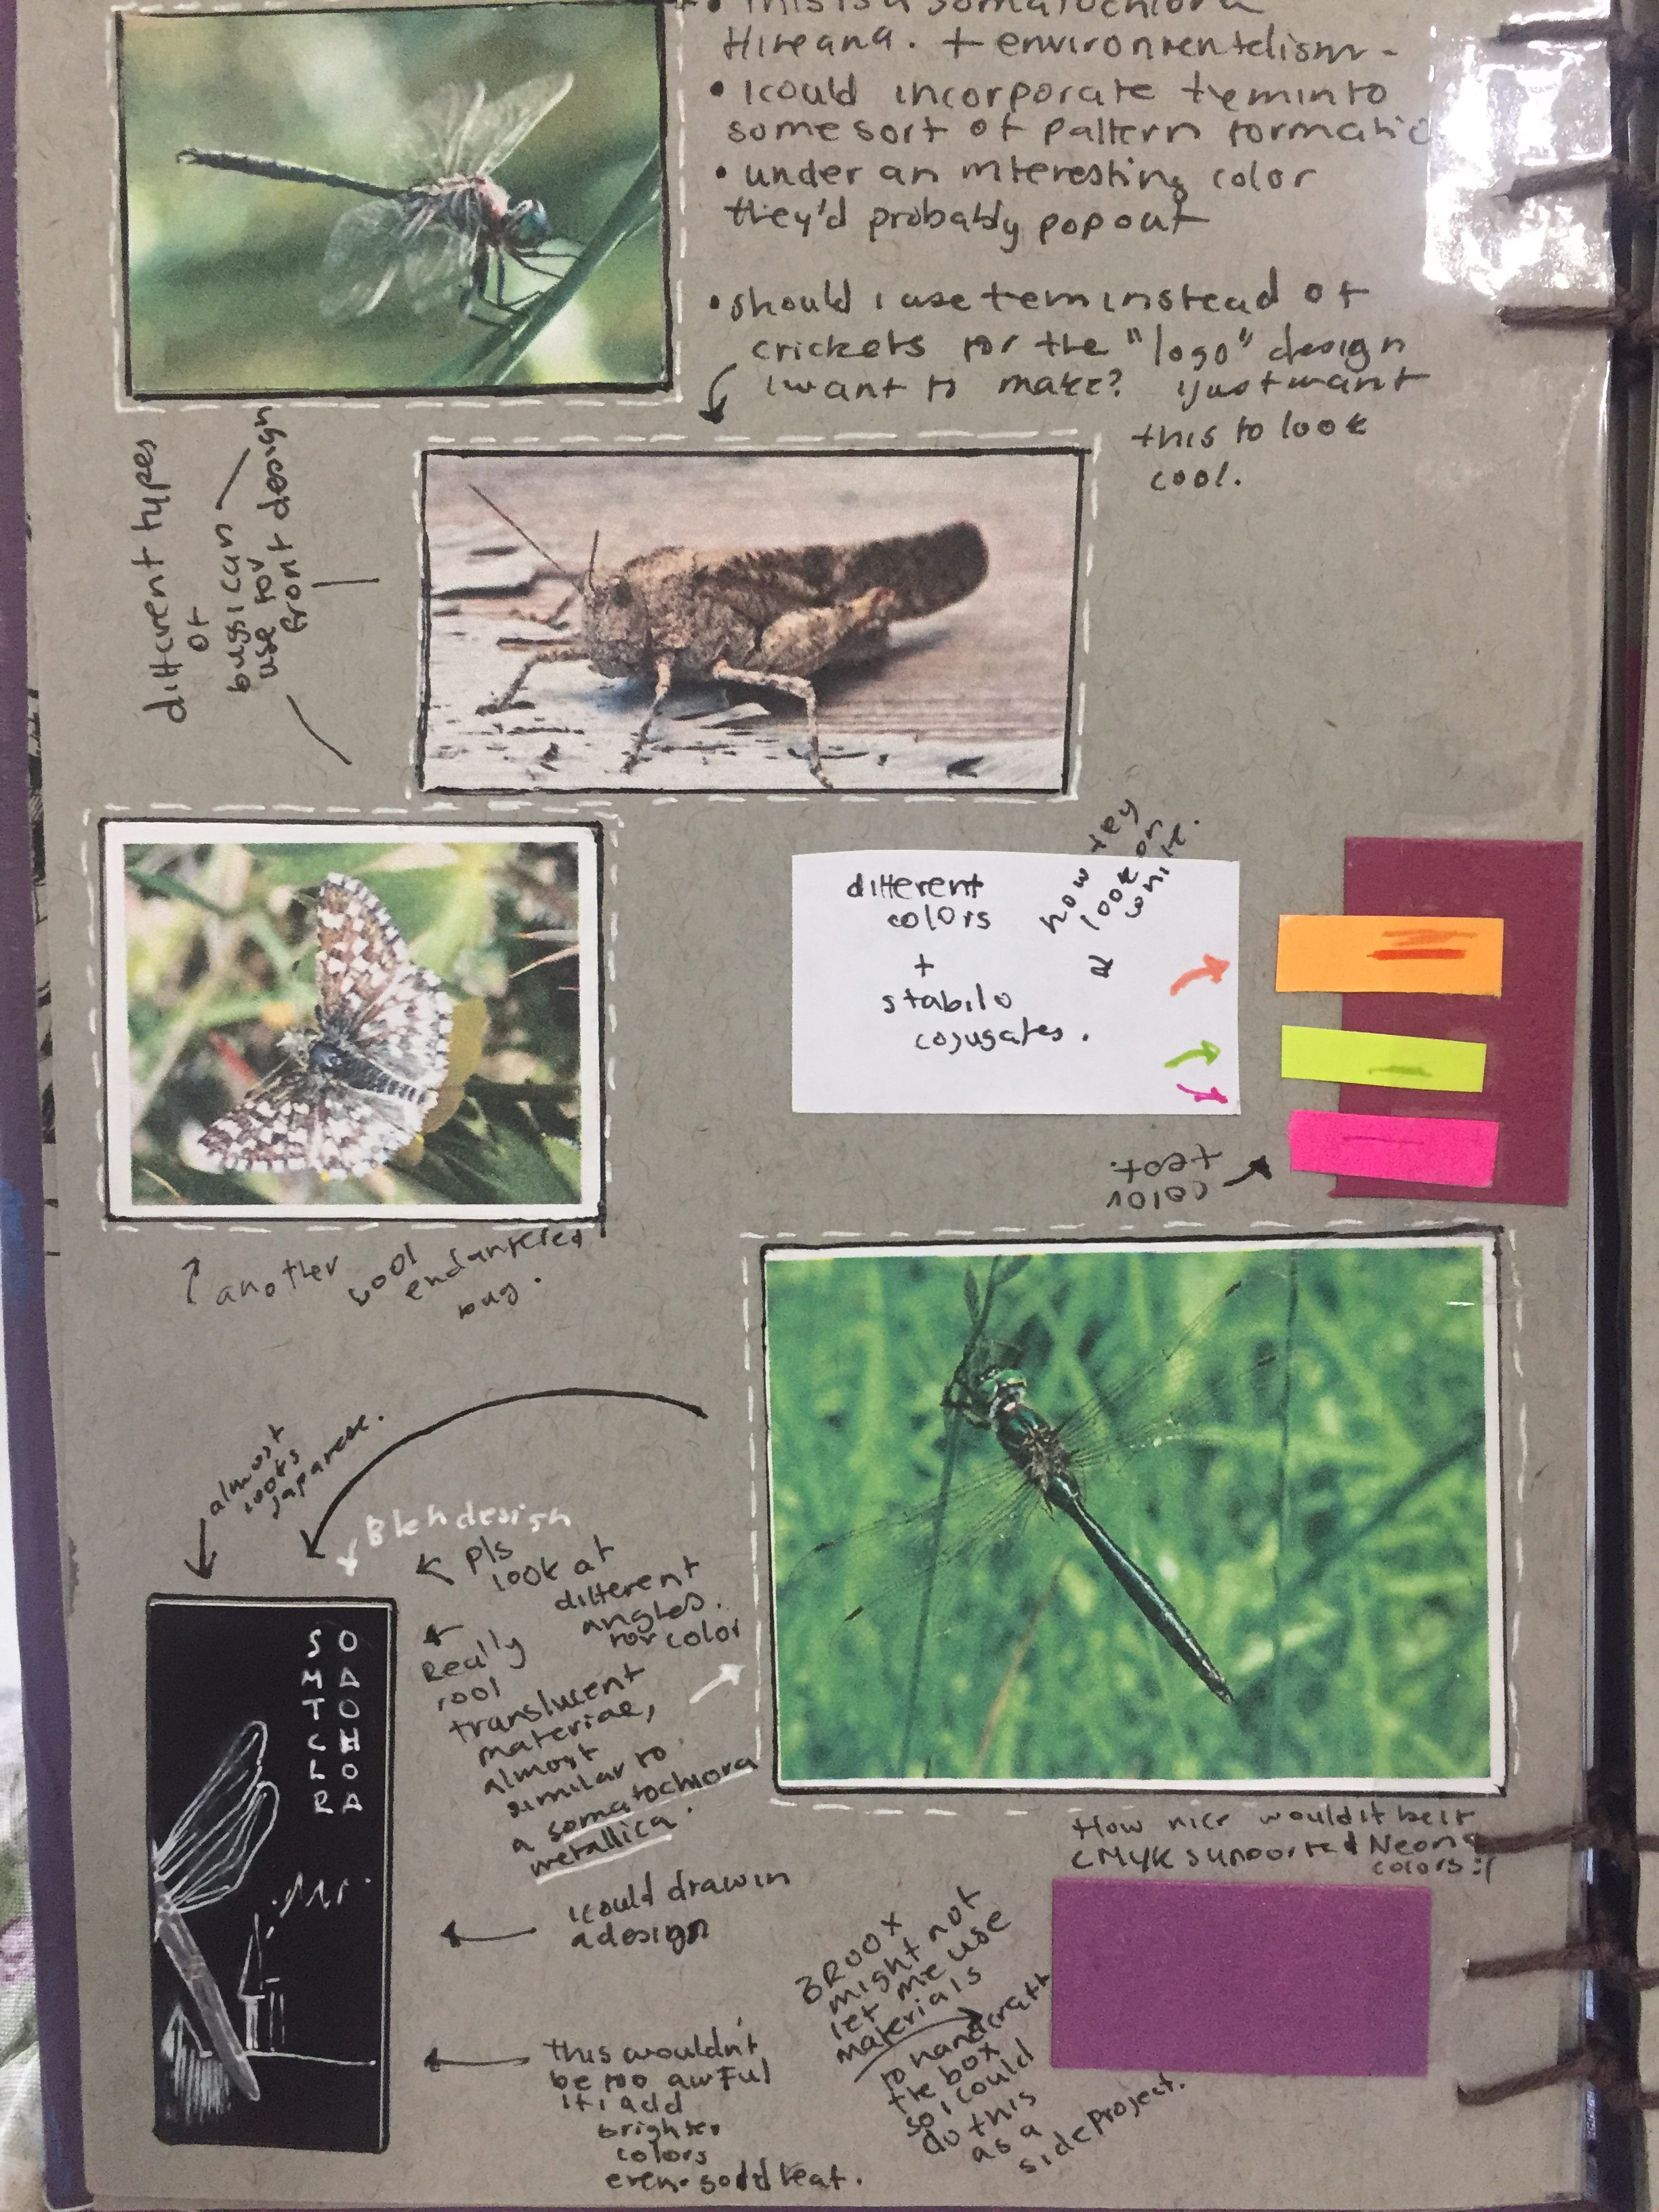 • This is a somatochlora
Hineana. + environmentelism-
• I could incorporate tem into
some sort of pattern formatio
• under an interesting color
they'd probably pop out
• should I use tem instead of
crickets for the "logo" design
I want to make? I just want
this to look
cool.
different types
of
bugs i can
use for
front design
different
colors
+
stabilo
cojugates.
how they
look on
white.
color
test.
another cool
endangered
bug.
almost
looks
japanese.
Bleh design
pls
look at
different
angles.
for color
Really
cool
translucent
materiae,
almost
similar to
a somatochlora
metallica.
S O
M A
T O
C H
L O
R A
I could draw in
a design
this wouldn't
be too awful
if i add
brighter
colors
even so
How nice would it be if
CMYK supported Neong
colors :(
BROOX
might not
let me use
materials
to handcraft
the box
so I could
do this
as a
side project.